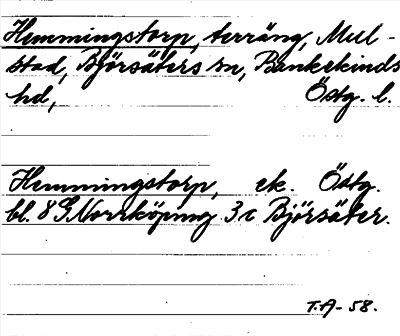 Hemmingstorp, terräng, Mul-
stad, Björsäters sn, Bankekinds
hd, Östg. l.
Hemmingstorp, ek. Östg.
bl. 8 G Norrköping 3 c Björsäter.
T.A-58.